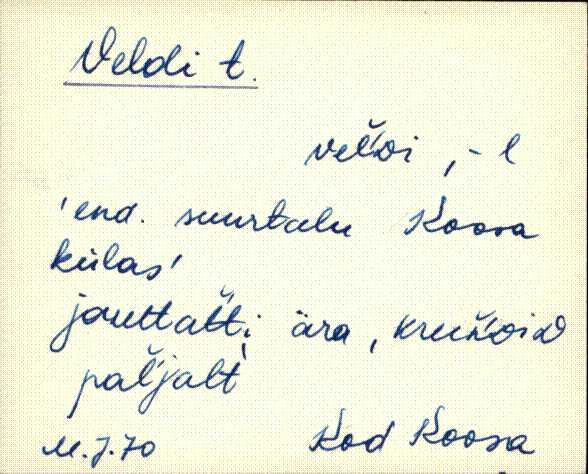 Veldi t.
vel̆di, -l
'end. suurtalu Koosa
külas'
jauttat̆ti ära, krun̆did
pal̆jalt
M. J. 70 Kod Koosa